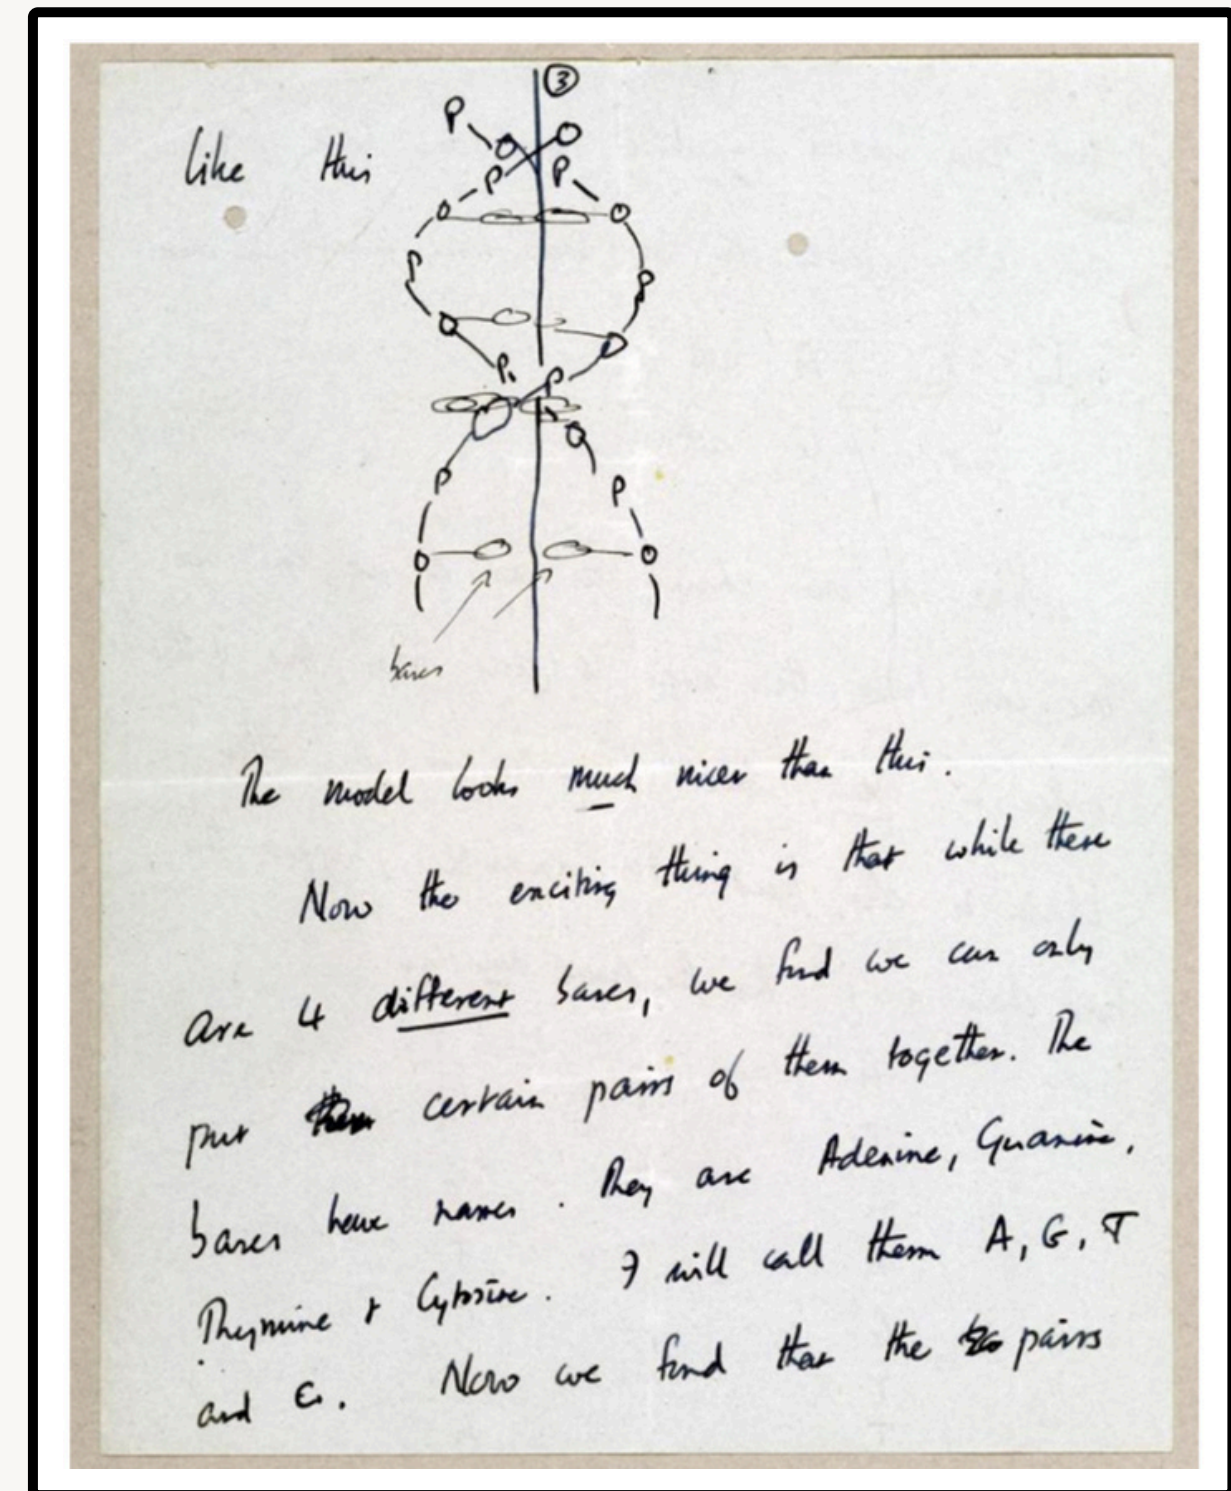 ③
like this
P
O
O
P
P
O
O
P
P
O
O
P
P
O
P
P
O
O
bases
The model looks much nicer than this.
Now the exciting thing is that while there
are 4 different bases, we find we can only
put certain pairs of them together. The
bases have names. They are Adenine, Guanine,
Thymine & Cytosine. I will call them A, G, T
and C. Now we find that the pairs